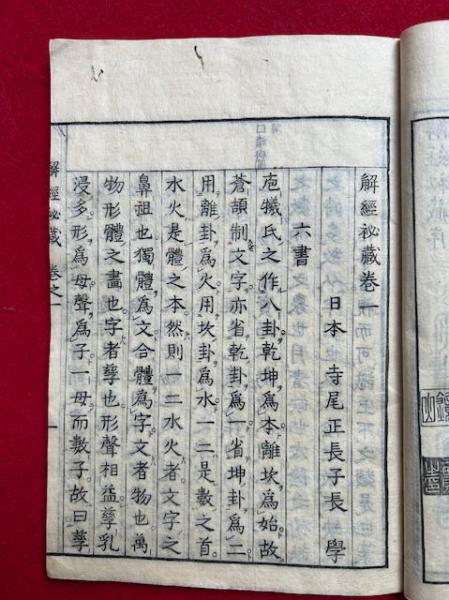 解經祕藏卷一
日本 寺尾正長子長 學
六書
庖犧氏之作八卦乾坤爲本離坎爲始故
蒼頡制文字亦省乾卦爲一省坤卦爲二
用離卦爲火用坎卦爲水一二是數之首
水火是體之本然則一二水火者文字之
鼻祖也獨體爲文合體爲字文者物也萬
物形體之畫也字者孳也形聲相益孳乳
浸多形爲母聲爲子一母而數子故曰孳
解經祕藏 卷之一